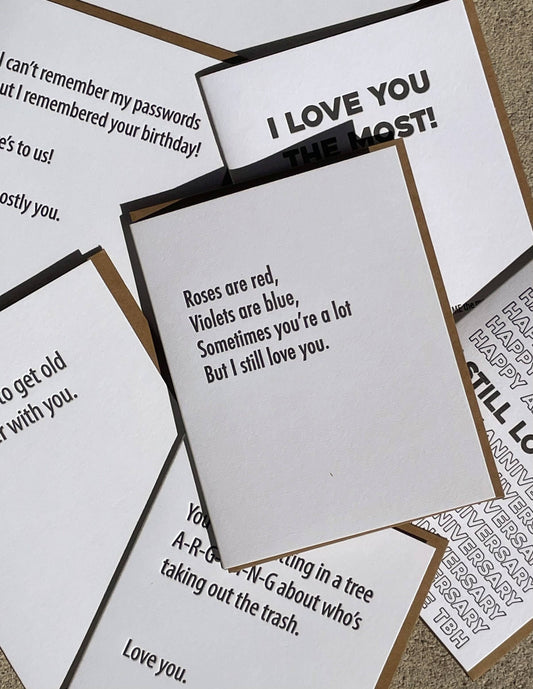 I can't remember my passwords
but I remembered your birthday!
e's to us!
ostly you.
I LOVE YOU
THE MOST!
Roses are red,
Violets are blue,
Sometimes you're a lot
But I still love you.
to get old
r with you.
You tting in a tree
A-R-G N-G about who's
taking out the trash.
Love you.
HAPPY
HAPPY A
STILL LO
ANNIV
NIVERS
VERSARY
NIVERSARY
ANNIVERSARY
ERSARY
E TBH